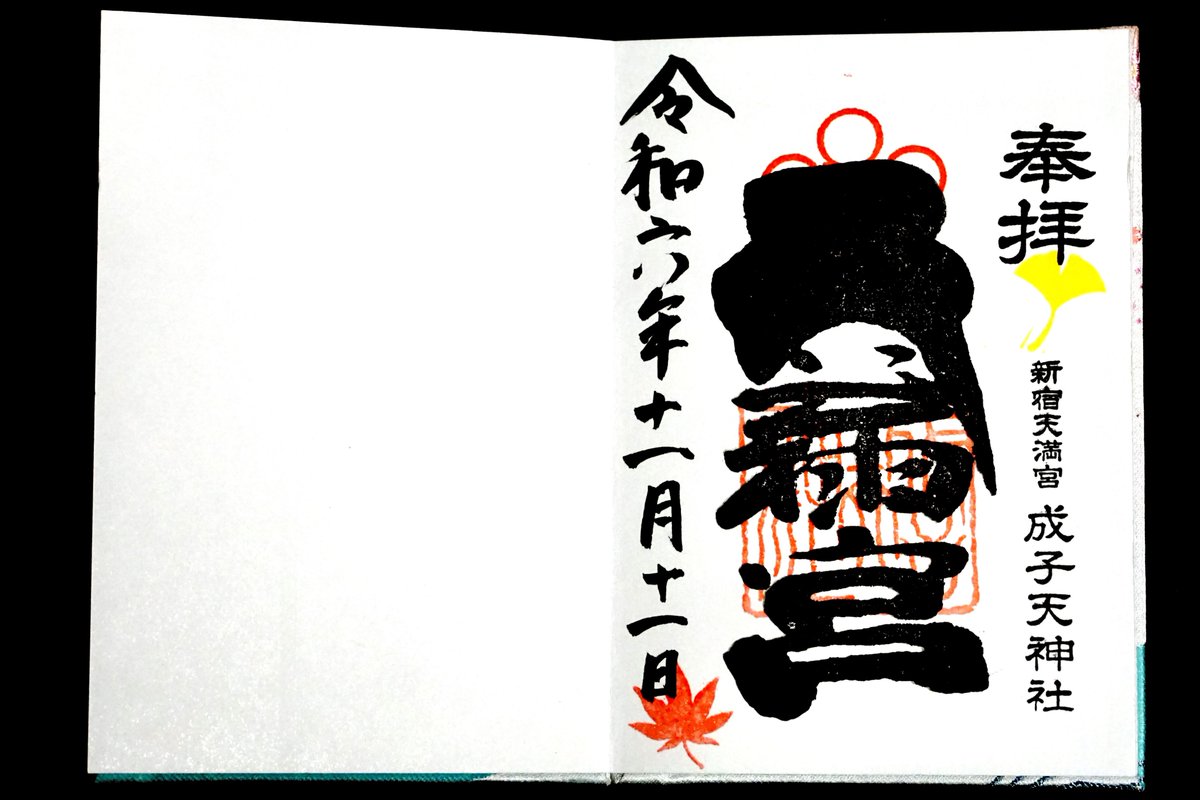 奉拝
新宿天満宮 成子天神社
天満宮
令和六年十一月十一日